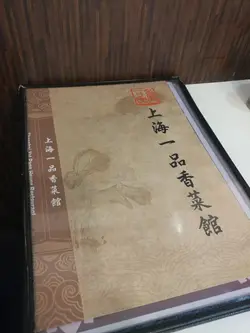 上海一品香菜館
上海一品香菜館